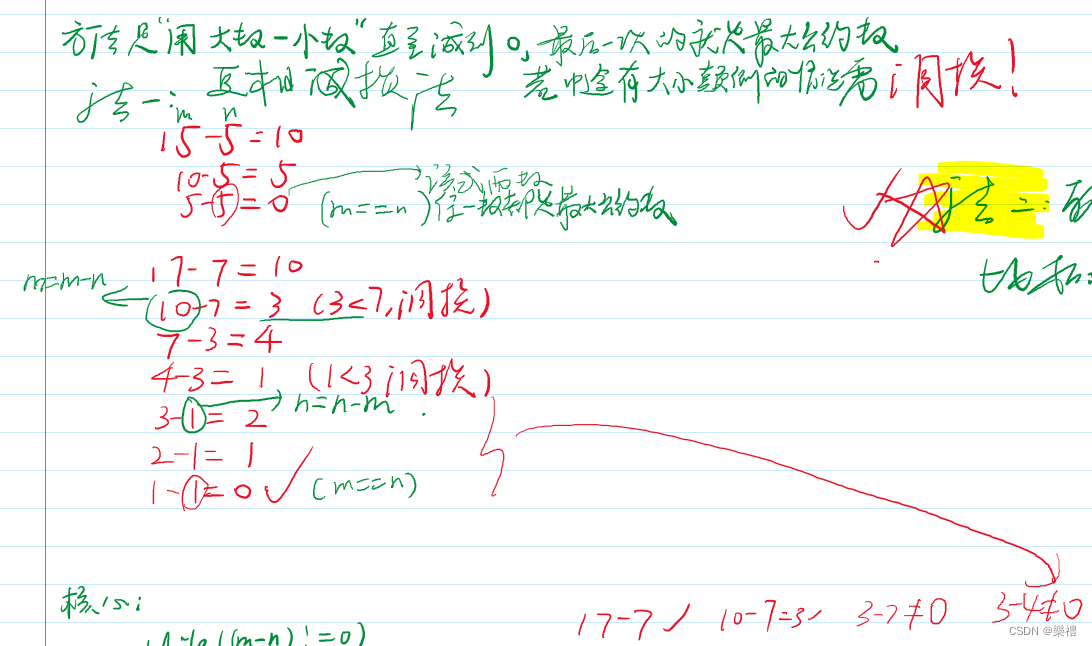 方法是“用大数-小数”直至减到0,最后一次的就是最大公约数
若中途有大小颠倒的情况需调换!
法一: 互相减损法
m n
15-5=10
10-5=5
5-5=0
该式两数
(m==n)任一数都是最大公约数
法二:
m=m-n
17-7=10
10-7=3 (3<7,调换)
7-3=4
4-3=1 (1<3调换)
3-1=2 n=n-m
2-1=1
1-1=0 (m==n)
核心:
while((m-n)!=0)
17-7 10-7=3 3-7≠0 3-4≠0
CSDN @樂禮